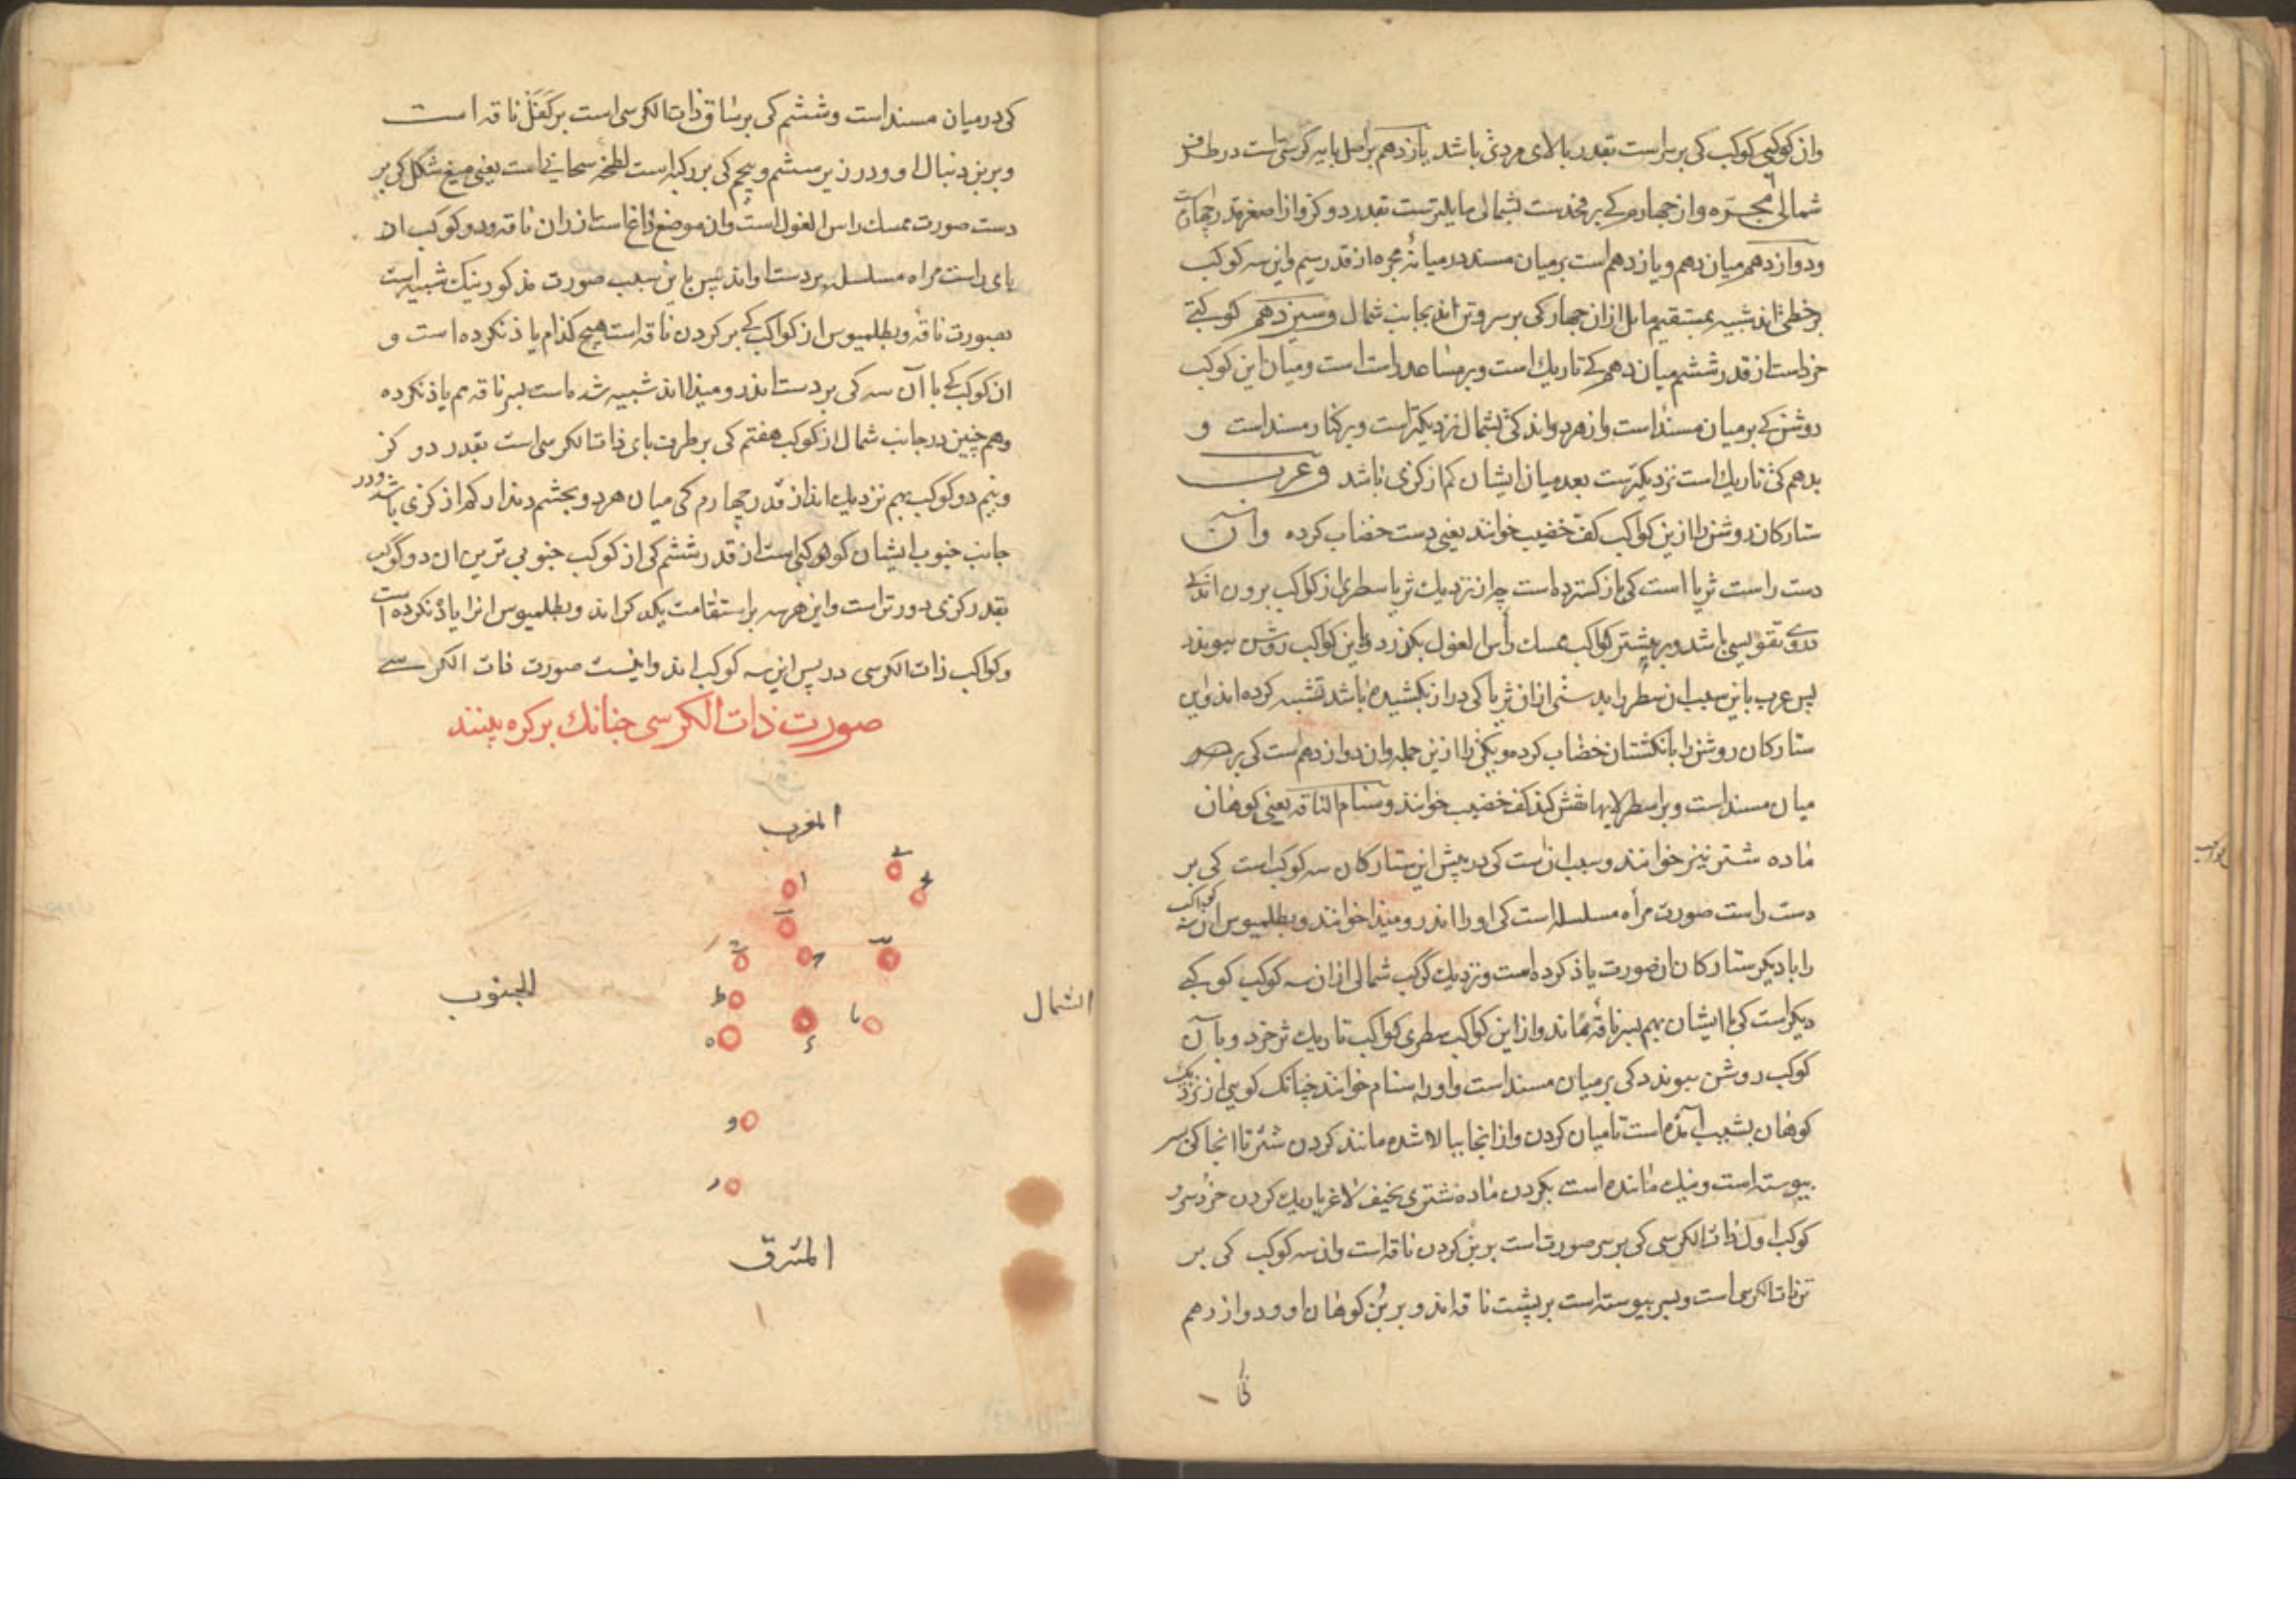 وان کوکبی کوکب کی بر سراست بقدر بالای مردی باشد یازدهم بر اصل پایه کرسی است در طرف
شمالی مجره واز چهارم کی بر فخذست بشمالی مایلترست بقدر دو کز واز اصغر قدر چهارم است
ودوازدهم میان دهم ویازدهم است بر میان مسند در میانه مجره از قدر سیم واین سه کوکب
بر خطی اند شبیه بمستقیم مایل ازان چهار کی بر سر وتن اند بجانب شمال وسیزدهم کوکبی
خردست از قدر ششم میان دهم کی تاریك است وبر ساعد راست است ومیان این کوکب
روشن کی بر میان مسنداست واز هر دو اند کی بشمال نزدیکترست وبر کنار مسنداست و
بدهم کی تاریك است نزدیکترست بعد میان ایشان کم از کزی باشد وعرب
ستارکان روشن را ازین کواکب کف خضیب خوانند یعنی دست خضاب کرده وآن
دست راست ثریا است کی باز کسترده است چه از نزدیك ثریا سطری از کواکب برون
تقویسی باشد وبر بیشتر کواکب ممسك راس الغول بکذرد وباین کواکب روشن بیوندد
پس عرب باین سبب ان سطر را بدستی ازان ثریا کی دراز بکشیده باشد تشبیه کرده اند واین
ستارکان روشن را بانکشتان خضاب کرده ویکی را ازین جمله وان دوازدهم است کی بر
میان مسنداست وبر اسطرلابها نقش کنند کف خضیب خوانند وسنام الناقه یعنی کوهان
ماده شتر نیز خوانند وسبب آنست کی در پیش این ستارکان سه کوکب است کی بر
دست راست صورت مرأه مسلسله است کی اورا اندرومیذا خوانند وبطلمیوس ان سه کواکب
را با دیکر ستارکان ان صورت یاذ کرده است ونزدیك کوکب شمالی ازان سه کوکب کوکبی
دیکراست کی با ایشان بهم بسر ناقه ماند واز این کواکب سطری کواکب تاریك تر خرد وبا آن
کوکب روشن بیوندد کی بر میان مسنداست واورا سنام خوانند چنانک کویی از نزدیک
کوهان بشیب آمذه است تا میان کردن واز انجا ببالا شده مانند کردن شتر تا انجا کی بسر
بیوسته است ونیك مانده است بکردن ماده شتری نحیف لاغر باریك کردن خرد سر و
کوکب اول ذات الکرسی کی بر سر صورت است بر بن کردن ناقه است وان سه کوکب کی بر
تن ذات الکرسی است وبسر بیوسته است بر پشت ناقه اند وبر بن کوهان او ودوازدهم
کی در میان مسنداست وششم کی بر ساق ذات الکرسی است بر کفل ناقه است
وبر بن دنبال او ودر زیر ششم وپنجم کی بر رکبه است لطخه سحابی است یعنی میغ شکل کی بر
دست صورت ممسك راس الغول است وان موضع داغ است از ران ناقه ودو کوکب از
پای راست مراه مسلسله بر دست او اند پس باین سبب صورت مذکور نیك شبیه است
بصورت ناقه وبطلمیوس از کواکب کی بر کردن ناقه است هیچ کدام یاذ نکرده است و
ان کوکب کی با آن سه کی بر دست اندرومیذا اند شبیه شده است بسر ناقه هم یاذ نکرده
وهم چنین در جانب شمال از کوکب هفتم کی بر طرف پای ذات الکرسی است بقدر دو کز
ونیم دو کوکب بهم نزدیك اند از قدر چهارم کی میان هر دو بچشم دیذار کم از کزی باشد ودر
جانب جنوب ایشان کوکبی است از قدر ششم کی از کوکب جنوبی ترین ان دو کوکب
بقدر کزی دورترست واین هر سه بر استقامت یکدیکراند وبطلمیوس انرا یاذ نکرده است
وکواکب ذات الکرسی در پس این سه کوکب اند واینست صورت ذات الکرسی
صورت ذات الکرسی چنانك بر کره بینند
المغرب
ا
ب
الشمال
الجنوب
ط
یا
ه
و
ز
المشرق